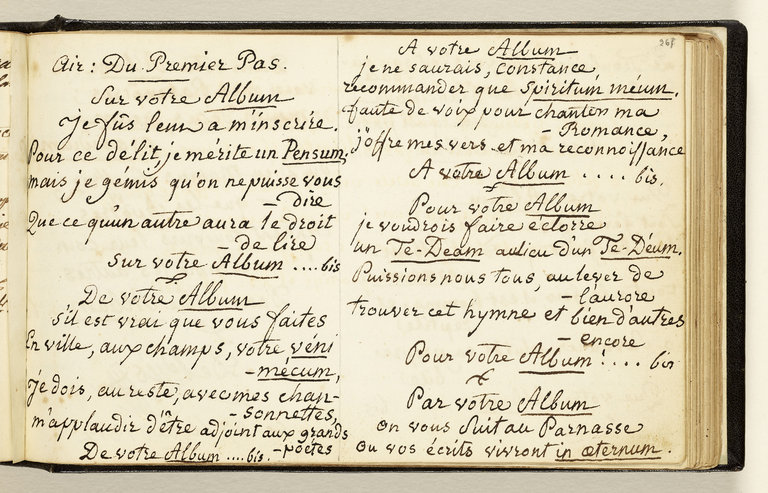 Air: Du Premier Pas.
Sur votre Album
Je fus lent a m'inscrire.
Pour ce délit je mérite un Pensum,
mais je gémis qu'on ne puisse vous
– dire
Que ce qu'un autre aura le droit
– de lire
Sur votre Album .... bis
De votre Album
s'il est vrai que vous faites
En ville, aux champs, votre véni
– mécum,
Je dois, au reste, avec mes chan-
– sonnettes,
m'applaudir d'être adjoint aux grands
– poëtes
De votre Album .... bis.
268
A votre Album
je ne saurais, Constance,
recommander que Spiritum méum.
faute de voix pour chanter ma
– Romance,
j'offre mes vers et ma reconnoissance
A votre Album .... bis.
Pour votre Album
je voudrois faire éclorre
un Te-Deam au lieu d'un Te-Déum.
Puissions nous tous, au lever de
– l'aurore
trouver cet hymne et bien d'autres
– encore
Pour votre Album! .... bis
Par votre Album
on vous Suit au Parnasse
Ou vos écrits vivront in œternum.